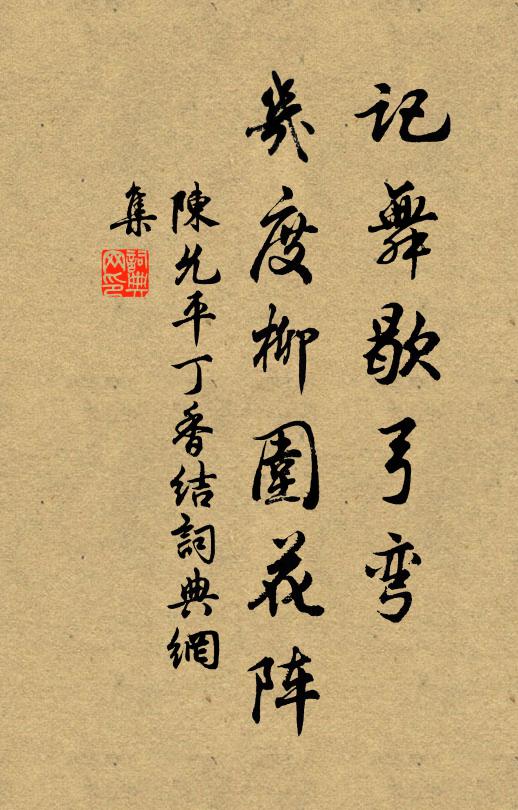 记舞歇弓弯
几度柳圍花阵
陳允平丁香结詞典網
集
詞典
网印